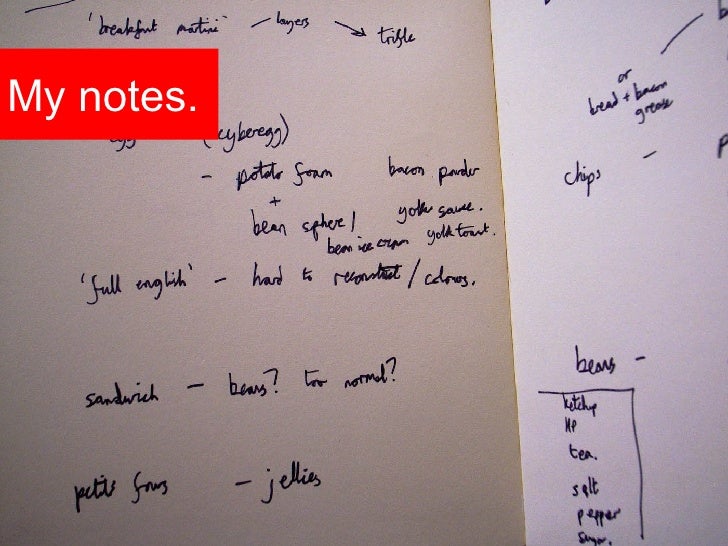 'breakfast martini' – layers → trifle
My notes.
(cyberegg)
- potato foam bacon powder
+
bean sphere / yolk sauce.
bean ice cream yolk toast.
'full english' – hard to reconstruct / colours.
sandwich – beans? too normal?
petits fours – jellies
or
bread + bacon
grease
chips –
beans –
ketchup
HP
tea.
salt
pepper
sugar.